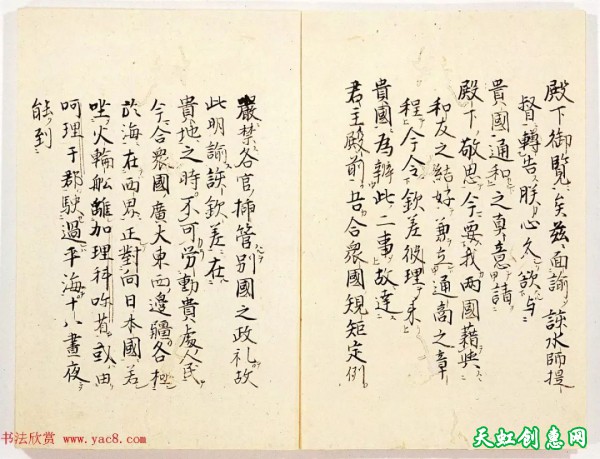 殿下御覧矣茲面諭誺水師提
督轉告朕心太欲与
貴國通和之真意請
殿下敬思今要我両國藉典
和友之結好兼立通商之章
程今令欽差彼理来
貴國為辨此二事故達
君主殿前告合衆國規矩定例
嚴禁各官挿管別國之政礼故
此明諭誺欽差在
貴地之時不可労動貴處人民
今合衆國廣大東西邊疆各極
於海在西界正對向日本國若
坐火輪船離加理科呀省或由
呵理干郡駛過平海十八晝夜
能到
书法欣赏 www.yac8.com
天虹创意网